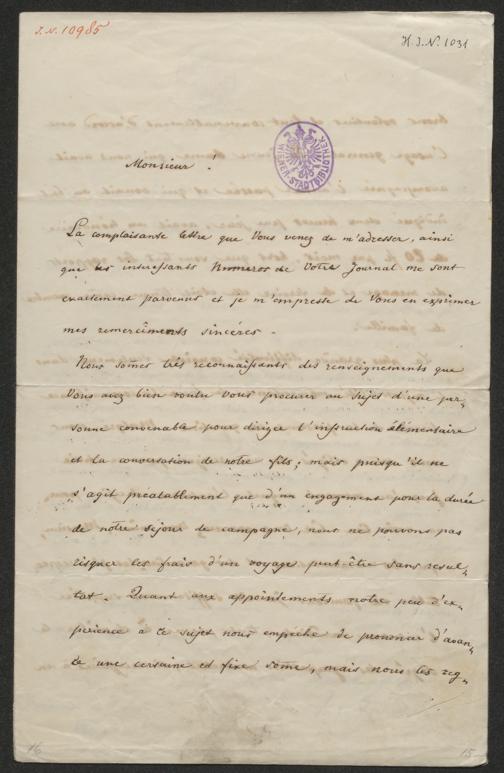 J.N. 10985
H.I.N. 1031
WIENER STADTBIBLIOTHEK
Monsieur !
La complaisante lettre que Vous venez de m'adresser, ainsi
que les intéressants Numeros de Votre Journal me sont
exactement parvenus et je m'empresse de Vous en exprimer
mes remerciments sincères.
Nous somes très reconnaissants des renseignements que
Vous avez bien voulu Vous procurer au sujet d'une per-
sonne convenable pour diriger l'instruction élémentaire
et la conversation de notre fils; mais puisqu'il ne
s'agit préalablement que d'un engagement pour la durée
de notre séjour de campagne, nous ne pouvons pas
risquer les frais d'un voyage peut-être sans resul-
tat. Quant aux appointements notre peu d'ex-
périence à ce sujet nous empêche de prononcer d'avan-
ce une certaine et fixe some, mais nous les reg-
16
15